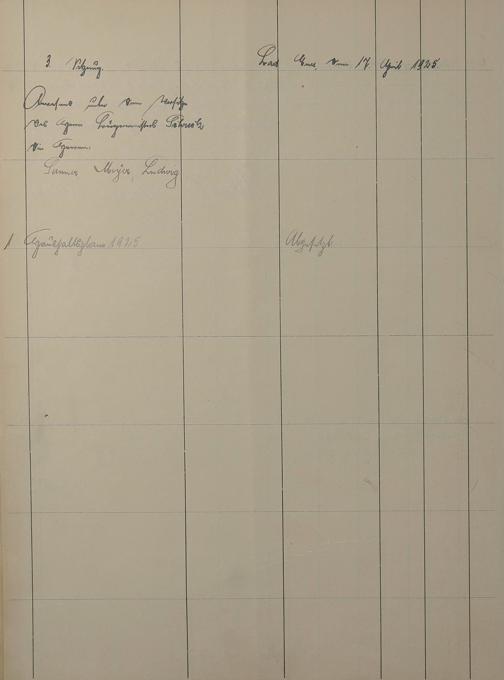 3. Sitzung. Bad Ems, den 17 April 1925
Anwesend unter dem Vorsitze
des Herrn Bürgermeisters
die Herren:
Sanner Meyer, Ludwig
1 Haushaltsplan 1925 Abgesetzt